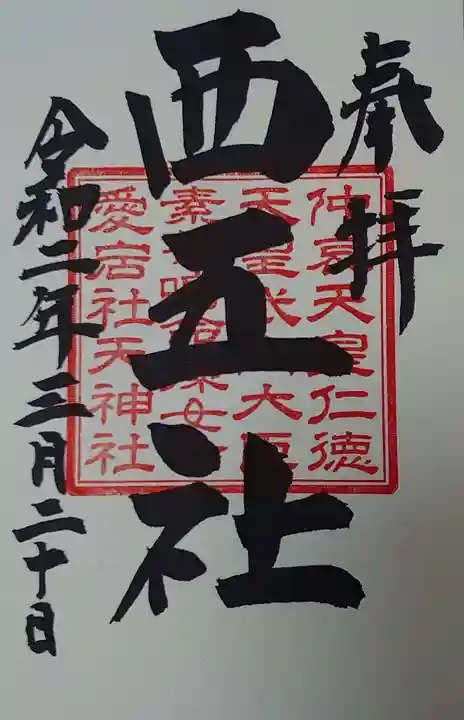 奉拝
西五社
令和二年三月二十日
仲哀天皇仁徳
天皇武大臣
素命棗女
愛宕社天神社